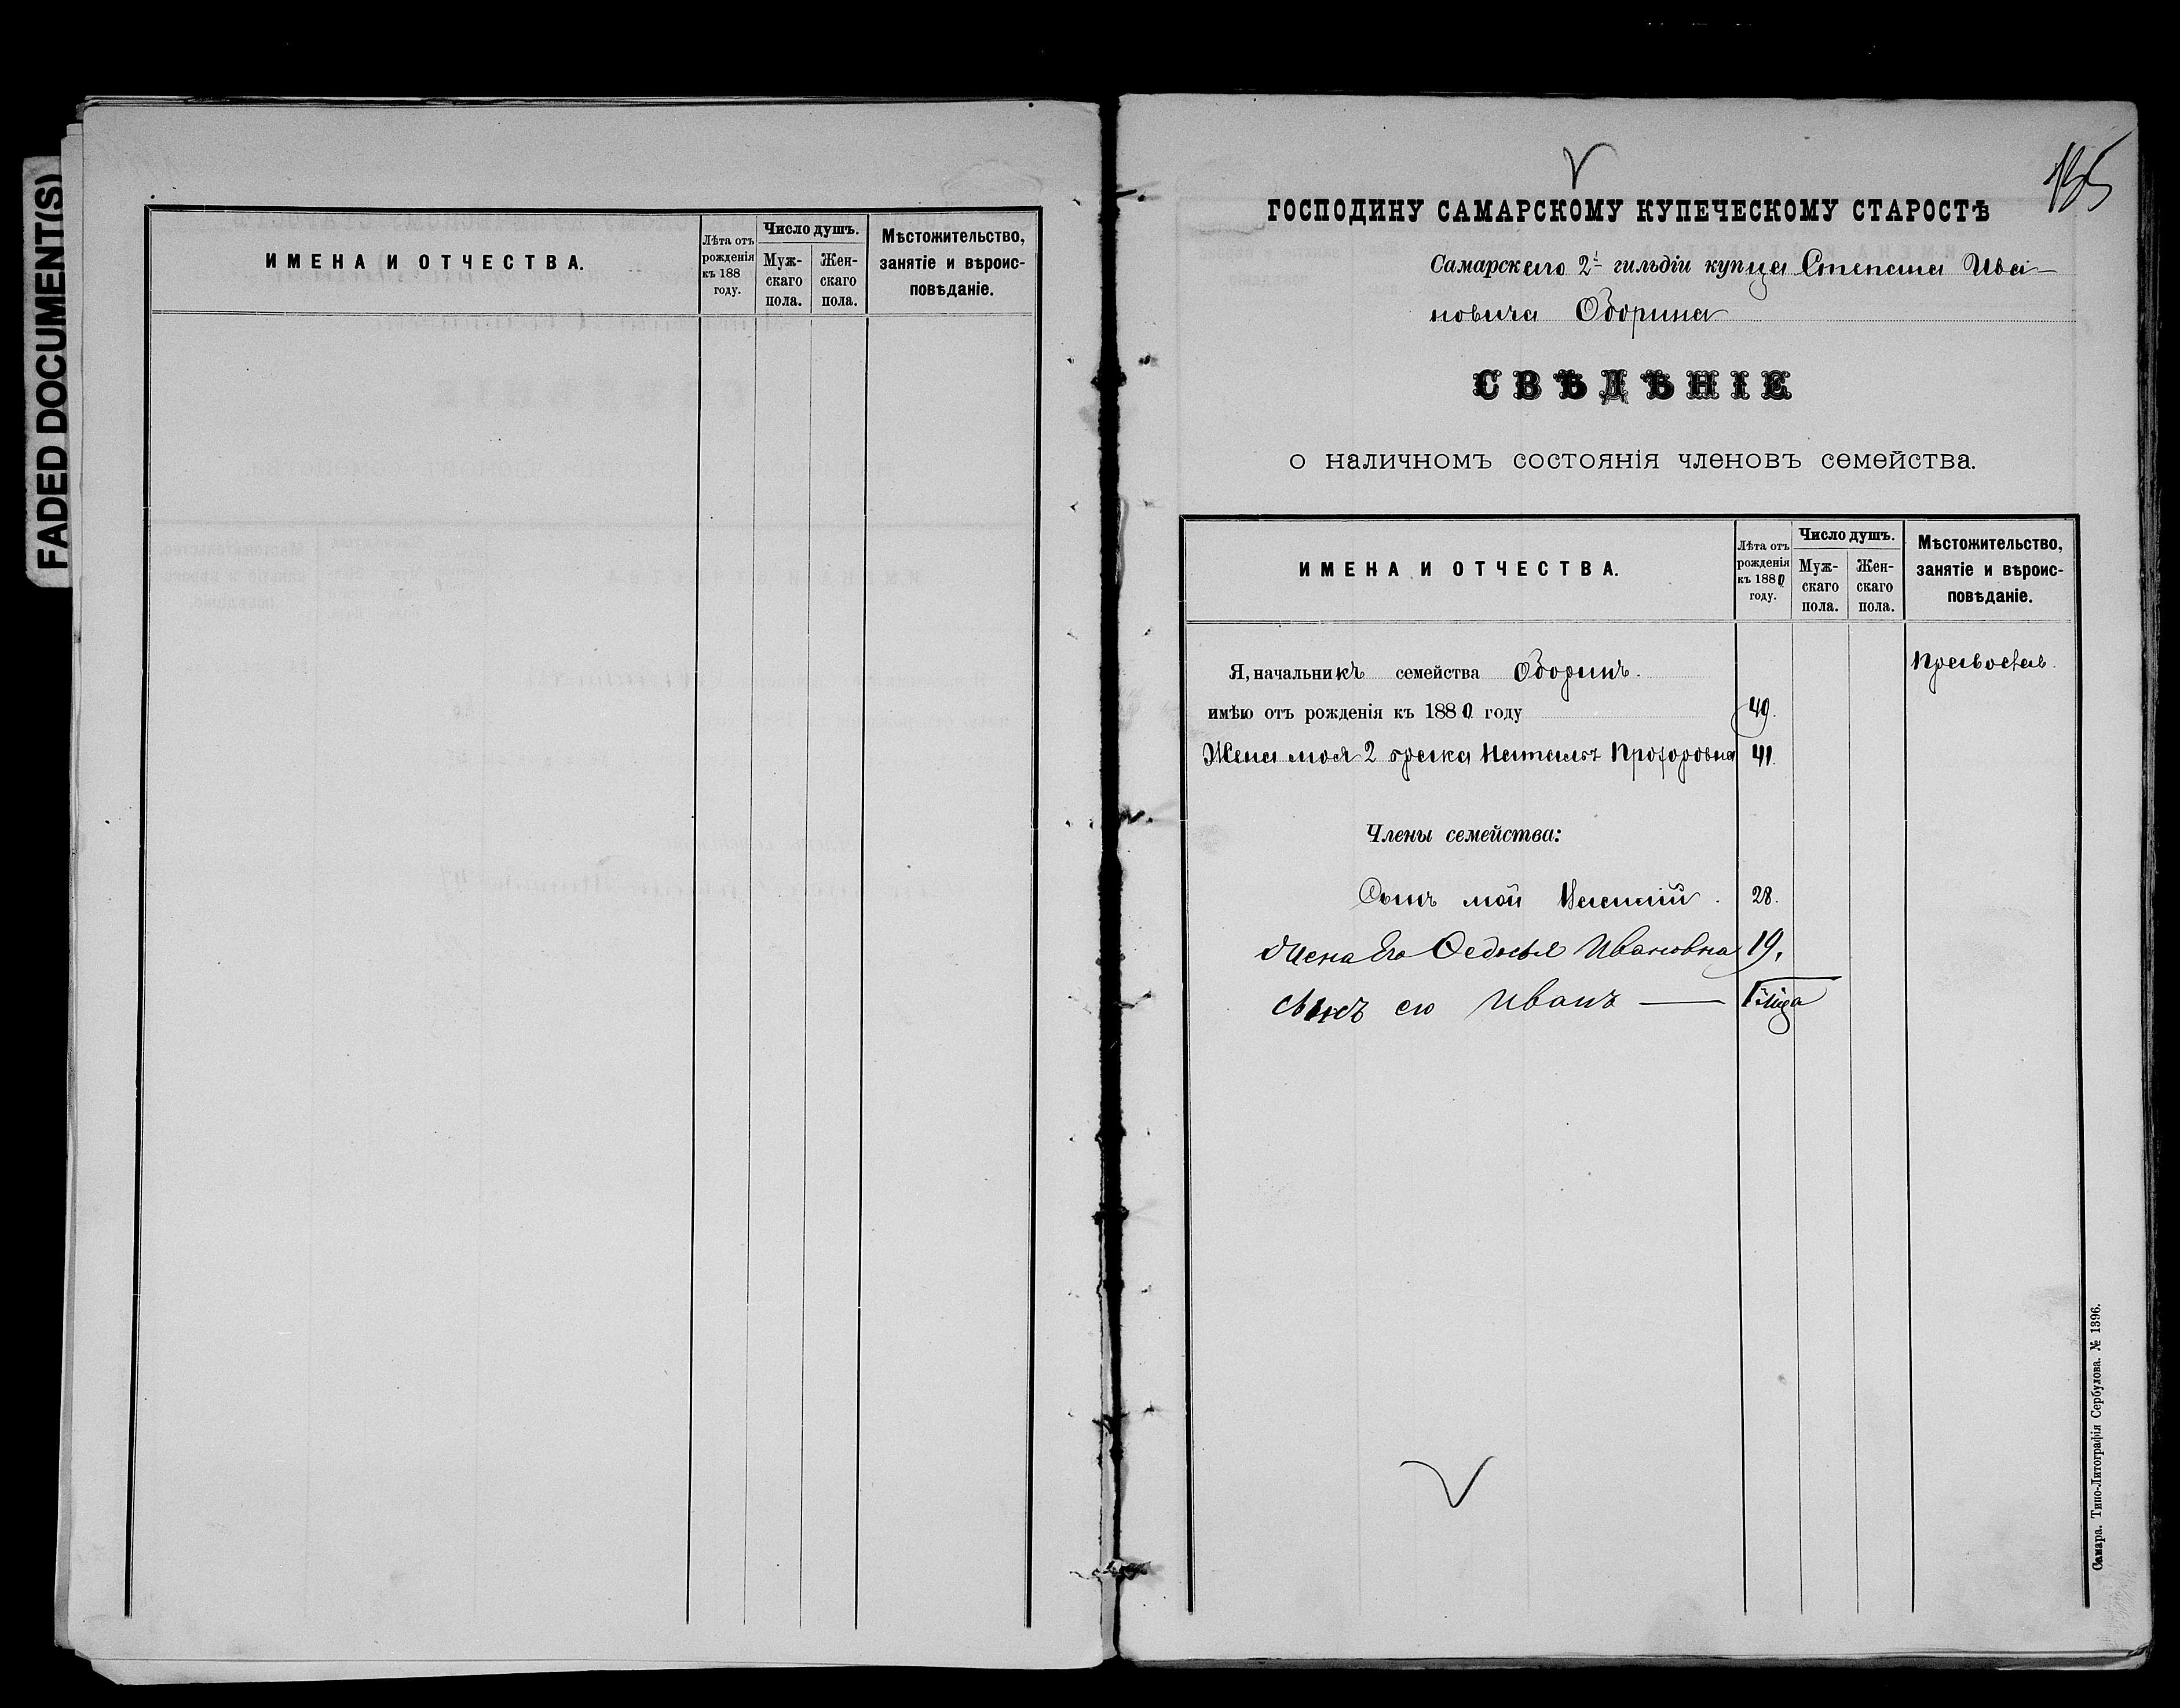 FADED DOCUMENT(S)
ИМЕНА И ОТЧЕСТВА.
Лѣта отъ рожденія къ 188 году.
Число душъ.
Мужскаго пола.
Женскаго пола.
Мѣстожительство, занятіе и вѣроисповѣданіе.
185
ГОСПОДИНУ САМАРСКОМУ КУПЕЧЕСКОМУ СТАРОСТѢ
Самарскаго 2й гильдіи купца Степана Ива-
новича Оборина
СВѢДѢНІЕ
о наличномъ состоянія членовъ семейства.
ИМЕНА И ОТЧЕСТВА.
Лѣта отъ рожденія къ 1880 году.
Число душъ.
Мужскаго пола.
Женскаго пола.
Мѣстожительство, занятіе и вѣроисповѣданіе.
Я, начальникъ семейства Оборинъ. Православ.
имѣю отъ рожденія къ 1880 году 49.
Жена моя 2 брака Наталья Прохоровна 41
Члены семейства:
Сынъ мой 28.
Жена Его Федосья Ивановна 19,
сынъ его Иванъ —
Самара. Типо-Литографія Сербулова. № 1396.